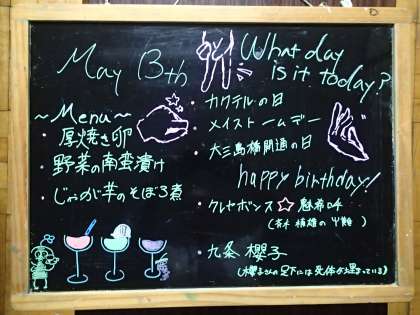 May 13th
What day
is it today?
~Menu~
・厚焼き卵
・野菜の南蛮漬け
・じゃが芋のそぼろ煮
・カクテルの日
・メイストームデー
・大三島橋開通の日
happy birthday!
・クレヤボンス☆
・九条 櫻子
(櫻子さんの足下には死体が埋まっている)